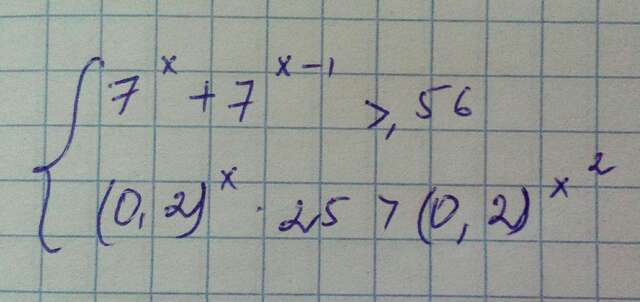 7^x + 7^{x-1} ≥ 56
(0,2)^x · 25 > (0,2)^{x^2}